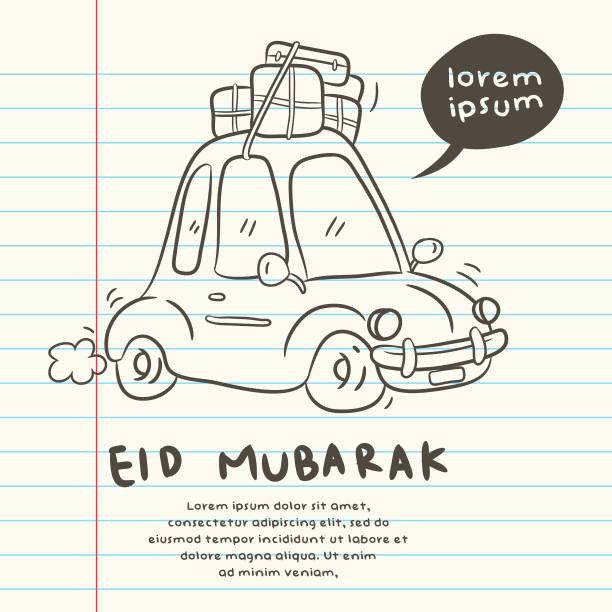 lorem
ipsum
EID MUBARAK
Lorem ipsum dolor sit amet,
consectetur adipiscing elit, sed do
eiusmod tempor incididunt ut labore et
dolore magna aliqua. Ut enim
ad minim veniam,